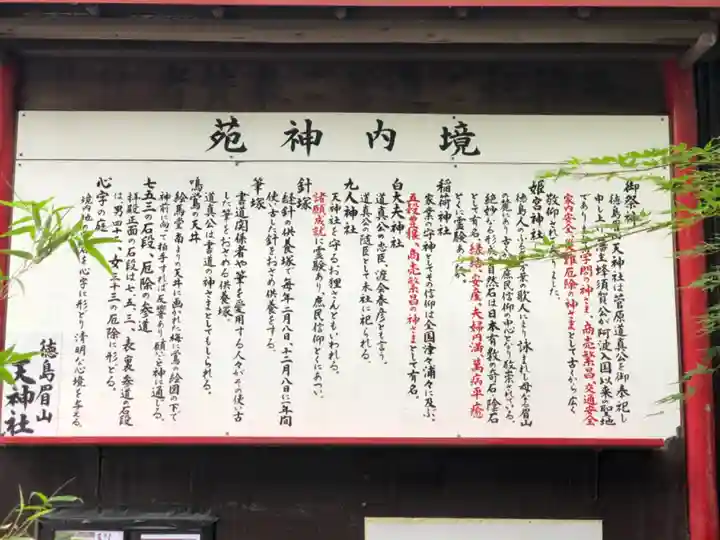 境内神苑
御祭神
徳島 天神社は菅原道真公を御奉祀し
申し 藩主蜂須賀公が阿波入国以来の聖地
であり 学問の神さま、商売繁昌、交通安全
家内安全、 難厄除の神さまとして古くから広く
敬仰され ました。
姫宮神社
徳島人の 万葉の歌人により詠まれし母なる眉山
の麓にあり 古 庶民信仰の中心となり敬崇されている。
絶妙なる形 自然石は日本有数の奇石陰石
として有名。縁結、安産、夫婦円満、万病平癒
とくに霊験あらた
稲荷神社
家業の守神としてその信仰は全国津々浦々に及ぶ。
五穀豊穣、商売繁昌の神さまとして有名。
白太夫神社
道真公の忠臣、渡会春彦と云う。
道真公の随臣として末社に祀られる。
九人神社
天神社を守るお狸さんともいわれる。
諸願成就に霊験あり庶民信仰とくにあつい。
針塚
縫針の供養塚で毎年二月八日、十二月八日に一年間
使い古した針をおさめ供養をする。
筆塚
書道関係者や筆を愛用する人々がその使い古
した筆をおさめる供養塚。
道真公は書道の神さまとしてもしられる。
鳴鶯の天井
絵馬堂南よりの天井に画かれた梅に鶯の絵図の下で
神前に向って拍手すれば反響あり願いと神に通じる。
七五三の石段、厄除の参道
拝殿正面の石段は七・五・三、表、裏参道の石段
は、男四十二、女三十三の厄除に形どる。
心字の庭
境内地の 心字に形どり清明な心境を与える。
徳島眉山
天神社